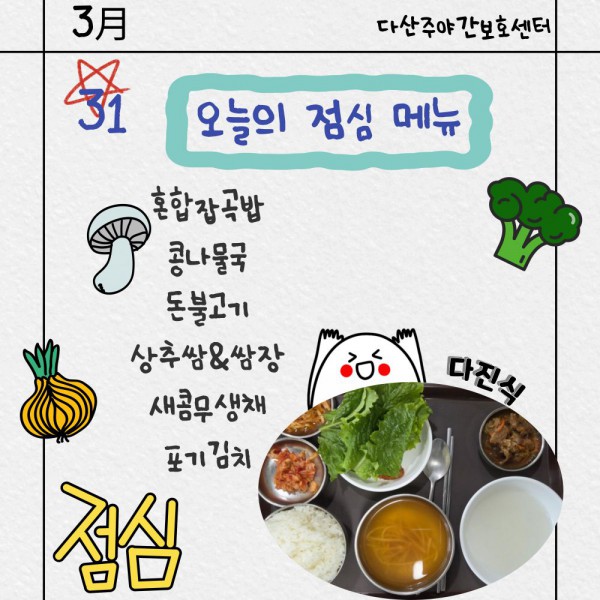 3月
다산주야간보호센터
31
오늘의 점심 메뉴
혼합잡곡밥
콩나물국
돈불고기
상추쌈&쌈장
새콤무생채
포기김치
다진식
점심